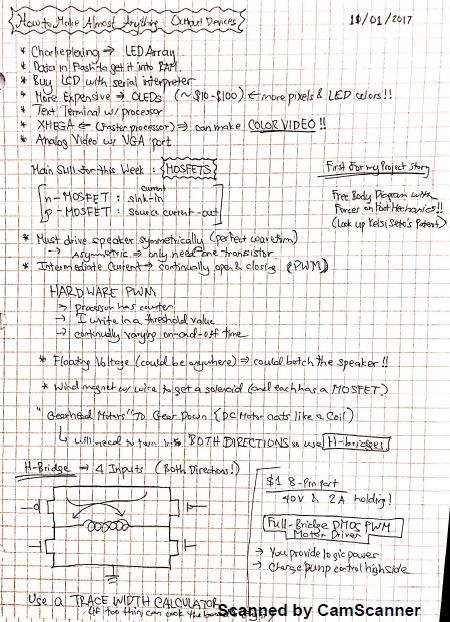 How to Make Almost Anything: Output Devices
11/01/2017
* Charlieplexing → LED Array
* Data in Flash to get it into RAM
* Buy LCD with serial interpreter
* More Expensive → OLEDs (~$10-$100) ← more pixels & LED colors!!
* Text Terminal w/ processor
* XMEGA ← (Faster processor) ⇒ can make COLOR VIDEO!!
* Analog Video w/ VGA port
Main Skill for this Week: {MOSFETS}
n-MOSFET: sink-in current
p-MOSFET: source current-out
First For my Project Story
Free Body Diagram with
Forces on Foot Mechanics!!
(Look up Kelsi Seto's Patent)
* Must drive speaker symmetrically (perfect waveform)
→ Asymmetric ⇒ only need one transistor
* Intermediate Current → continually open & closing (PWM)
HARDWARE PWM
→ processor has counter
→ I write in a threshold value
→ continually varying on-and-off time
* Floating Voltage (could be anywhere) ⇒ could botch the speaker!!
* Wind magnet w/ wire to get a solenoid (and each has a MOSFET)
"Gearhead Motors" To Gear Down {DC Motor acts like a Coil}
↳ will need to turn in BOTH DIRECTIONS so use H-bridges
H-Bridge → 4 Inputs (Both Directions!)
$1 8-Pin part
40V & 2A holding!
Full-Bridge DMOS PWM
Motor Driver
→ You provide logic power
→ Charge pump control highside
Use a TRACE WIDTH CALCULATOR
(if too thin can cook the
Scanned by CamScanner